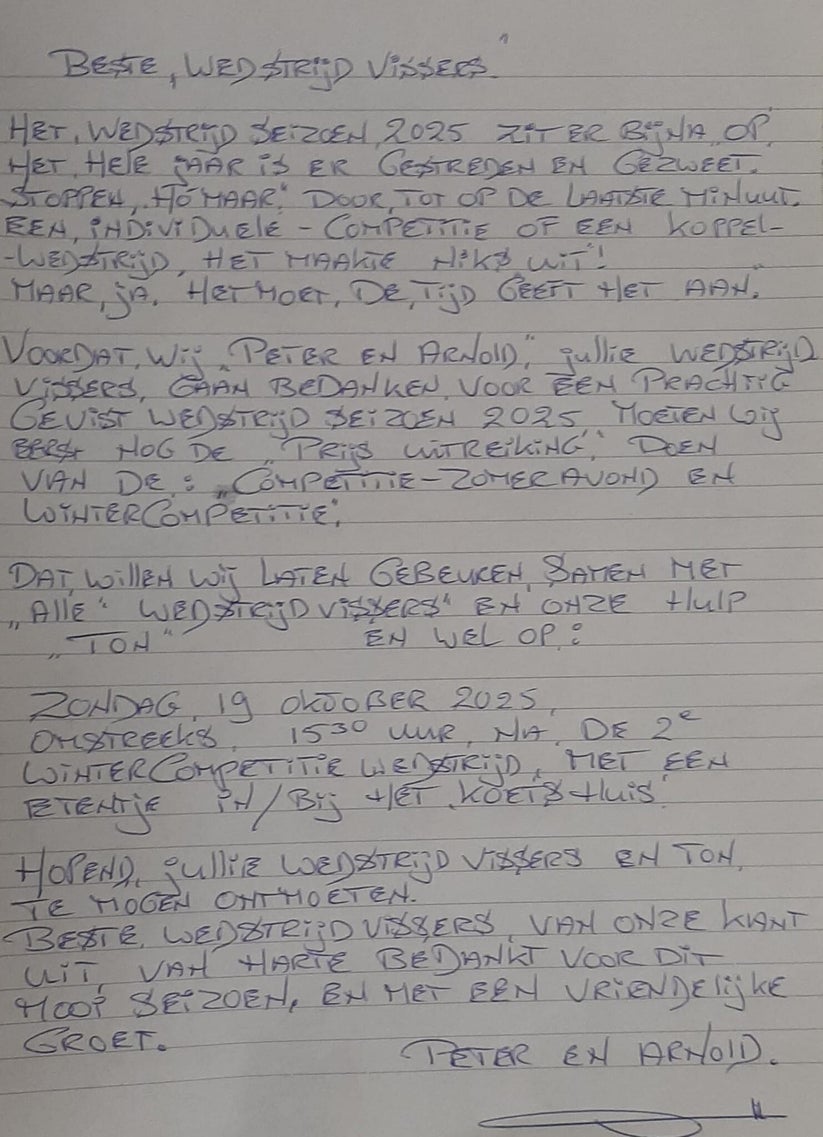 BESTE, WEDSTRIJD VISSERS"
HET, WEDSTRIJD SEIZOEN, 2025 ZIT ER BIJNA, OP,
HET, HELE JAAR IS ER GESTREDEN EN GEZWEET.
STOPPEN, „HO MAAR." DOOR, TOT OP DE LAATSTE MINUUT.
EEN, INDIVIDUELE - COMPETITIE OF EEN KOPPEL-
-WEDSTRIJD, HET MAAKTE NIKS UIT!
MAAR, JA, HET MOET, DE, TIJD GEEFT HET AAN.
VOORDAT, WIJ „PETER EN ARNOLD," JULLIE WEDSTRIJD
VISSERS, GAAN BEDANKEN, VOOR EEN PRACHTIG
GEVIST WEDSTRIJD SEIZOEN 2025, MOETEN WIJ
EERST NOG DE „PRIJS UITREIKING", DOEN
VAN DE: „COMPETITIE-ZOMERAVOND EN
WINTERCOMPETITIE",
DAT, WILLEN WIJ LATEN GEBEUREN, SAMEN MET
„ALLE" WEDSTRIJD VISSERS" EN ONZE HULP
„TON" EN WEL OP:
ZONDAG, 19 OKTOBER 2025,
OMSTREEKS, 15³⁰ UUR, NA, DE 2e
WINTERCOMPETITIE WEDSTRIJD, MET EEN
ETENTJE IN/BIJ HET „KOETSHUIS"
HOPEND, JULLIE WEDSTRIJD VISSERS EN TON,
TE MOGEN ONTMOETEN.
BESTE, WEDSTRIJD VISSERS, VAN ONZE KANT
UIT, VAN HARTE BEDANKT VOOR DIT
MOOI SEIZOEN, EN MET EEN VRIENDELIJKE
GROET.
PETER EN ARNOLD.